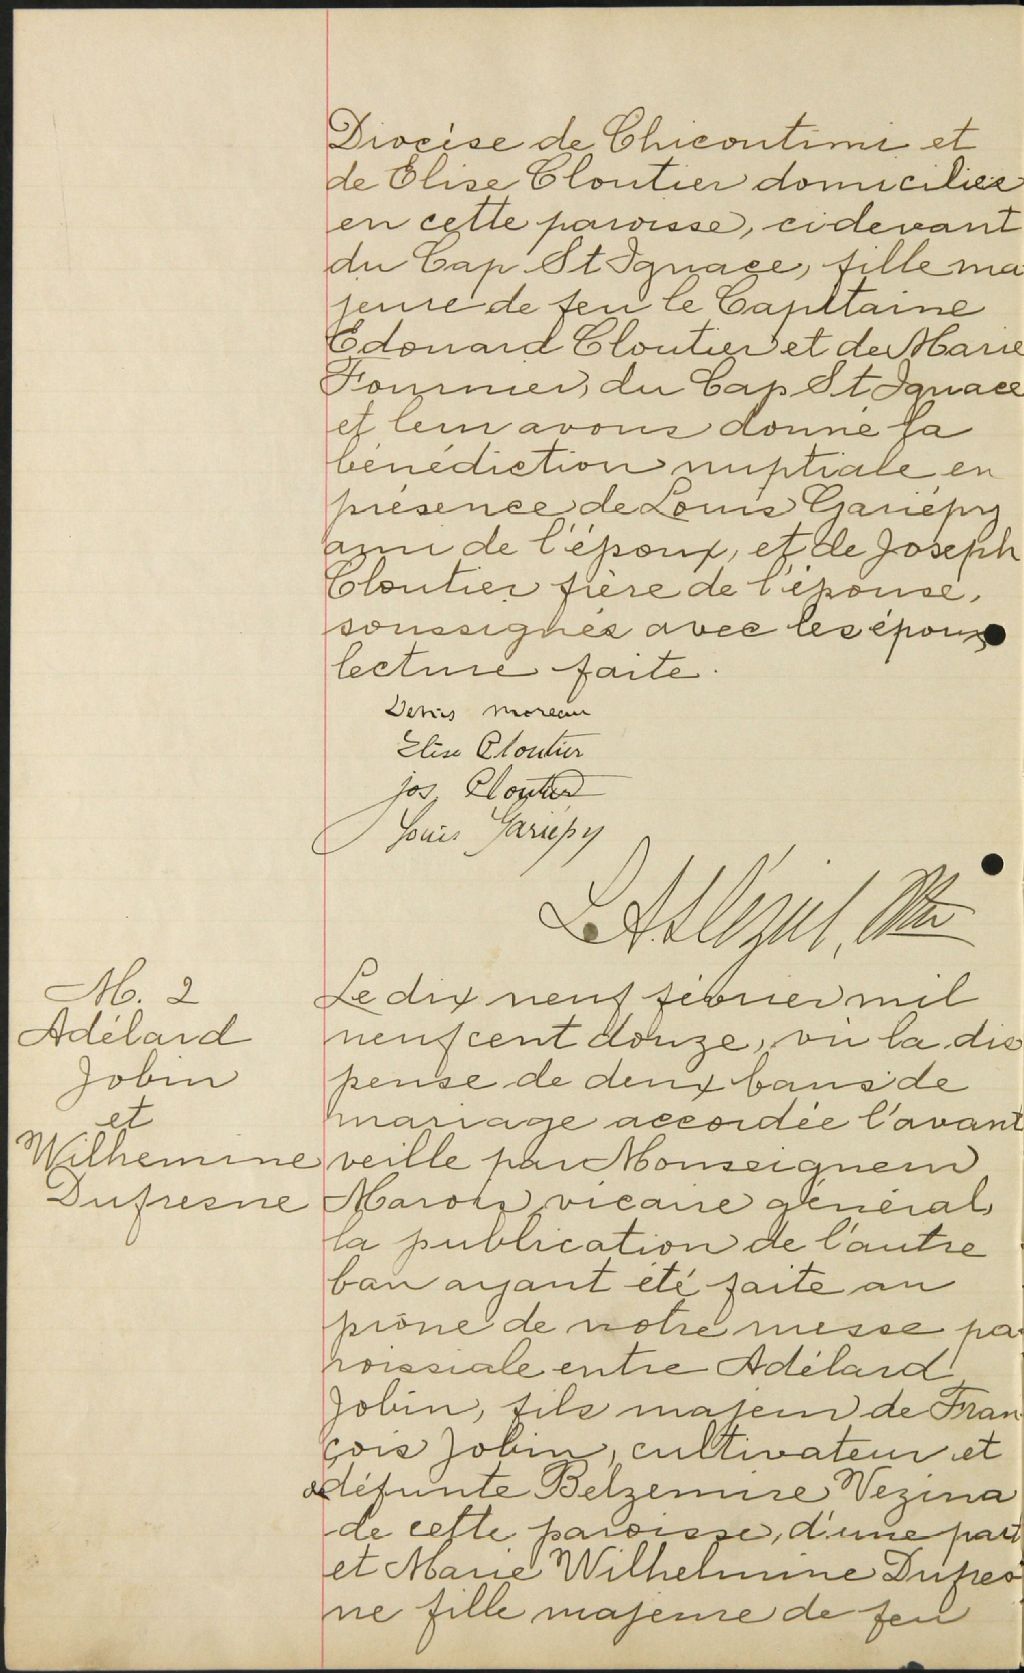 Diocèse de Chicoutimi et
de Elise Cloutier domiciliée
en cette paroisse, ci devant
du Cap St Ignace, fille ma
jeure de feu le Capitaine
Edouard Cloutier et de Marie
Fournier, du Cap St Ignace
et leur avons donné la
bénédiction nuptiale en
présence de Louis Gariépy
ami de l'époux, et de Joseph
Cloutier frère de l'épouse,
soussignés avec les époux
lecture faite.
Denis Moreau
Elise Cloutier
jos. Cloutier
Louis Gariépy
M. 2
Adélard
Jobin
et
Wilhemine
Dufresne
Le dix neuf février mil
neuf cent douze, vu la dis
pense de deux bans de
mariage accordée l'avant
veille par Monseigneur
Marois vicaire général,
la publication de l'autre
ban ayant été faite au
prône de notre messe pa
roissiale entre Adélard
Jobin, fils majeur de Fran
çois Jobin, cultivateur et
défunte Belzemire Vezina
de cette paroisse, d'une part
et Marie Wilhelmine Dufres
ne fille majeure de feu